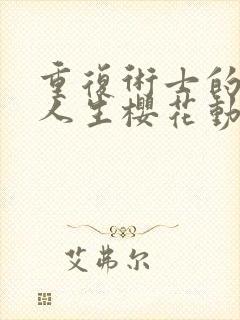 重復術士的
人生櫻花動
艾弗尔